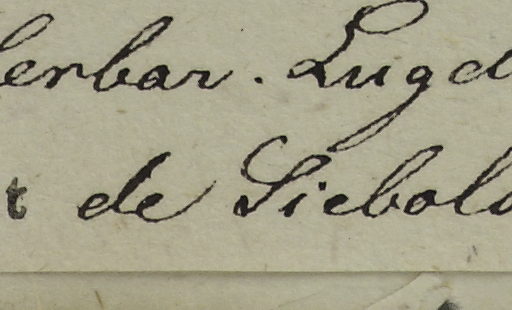 Herbar. Lugd
t de Siebold